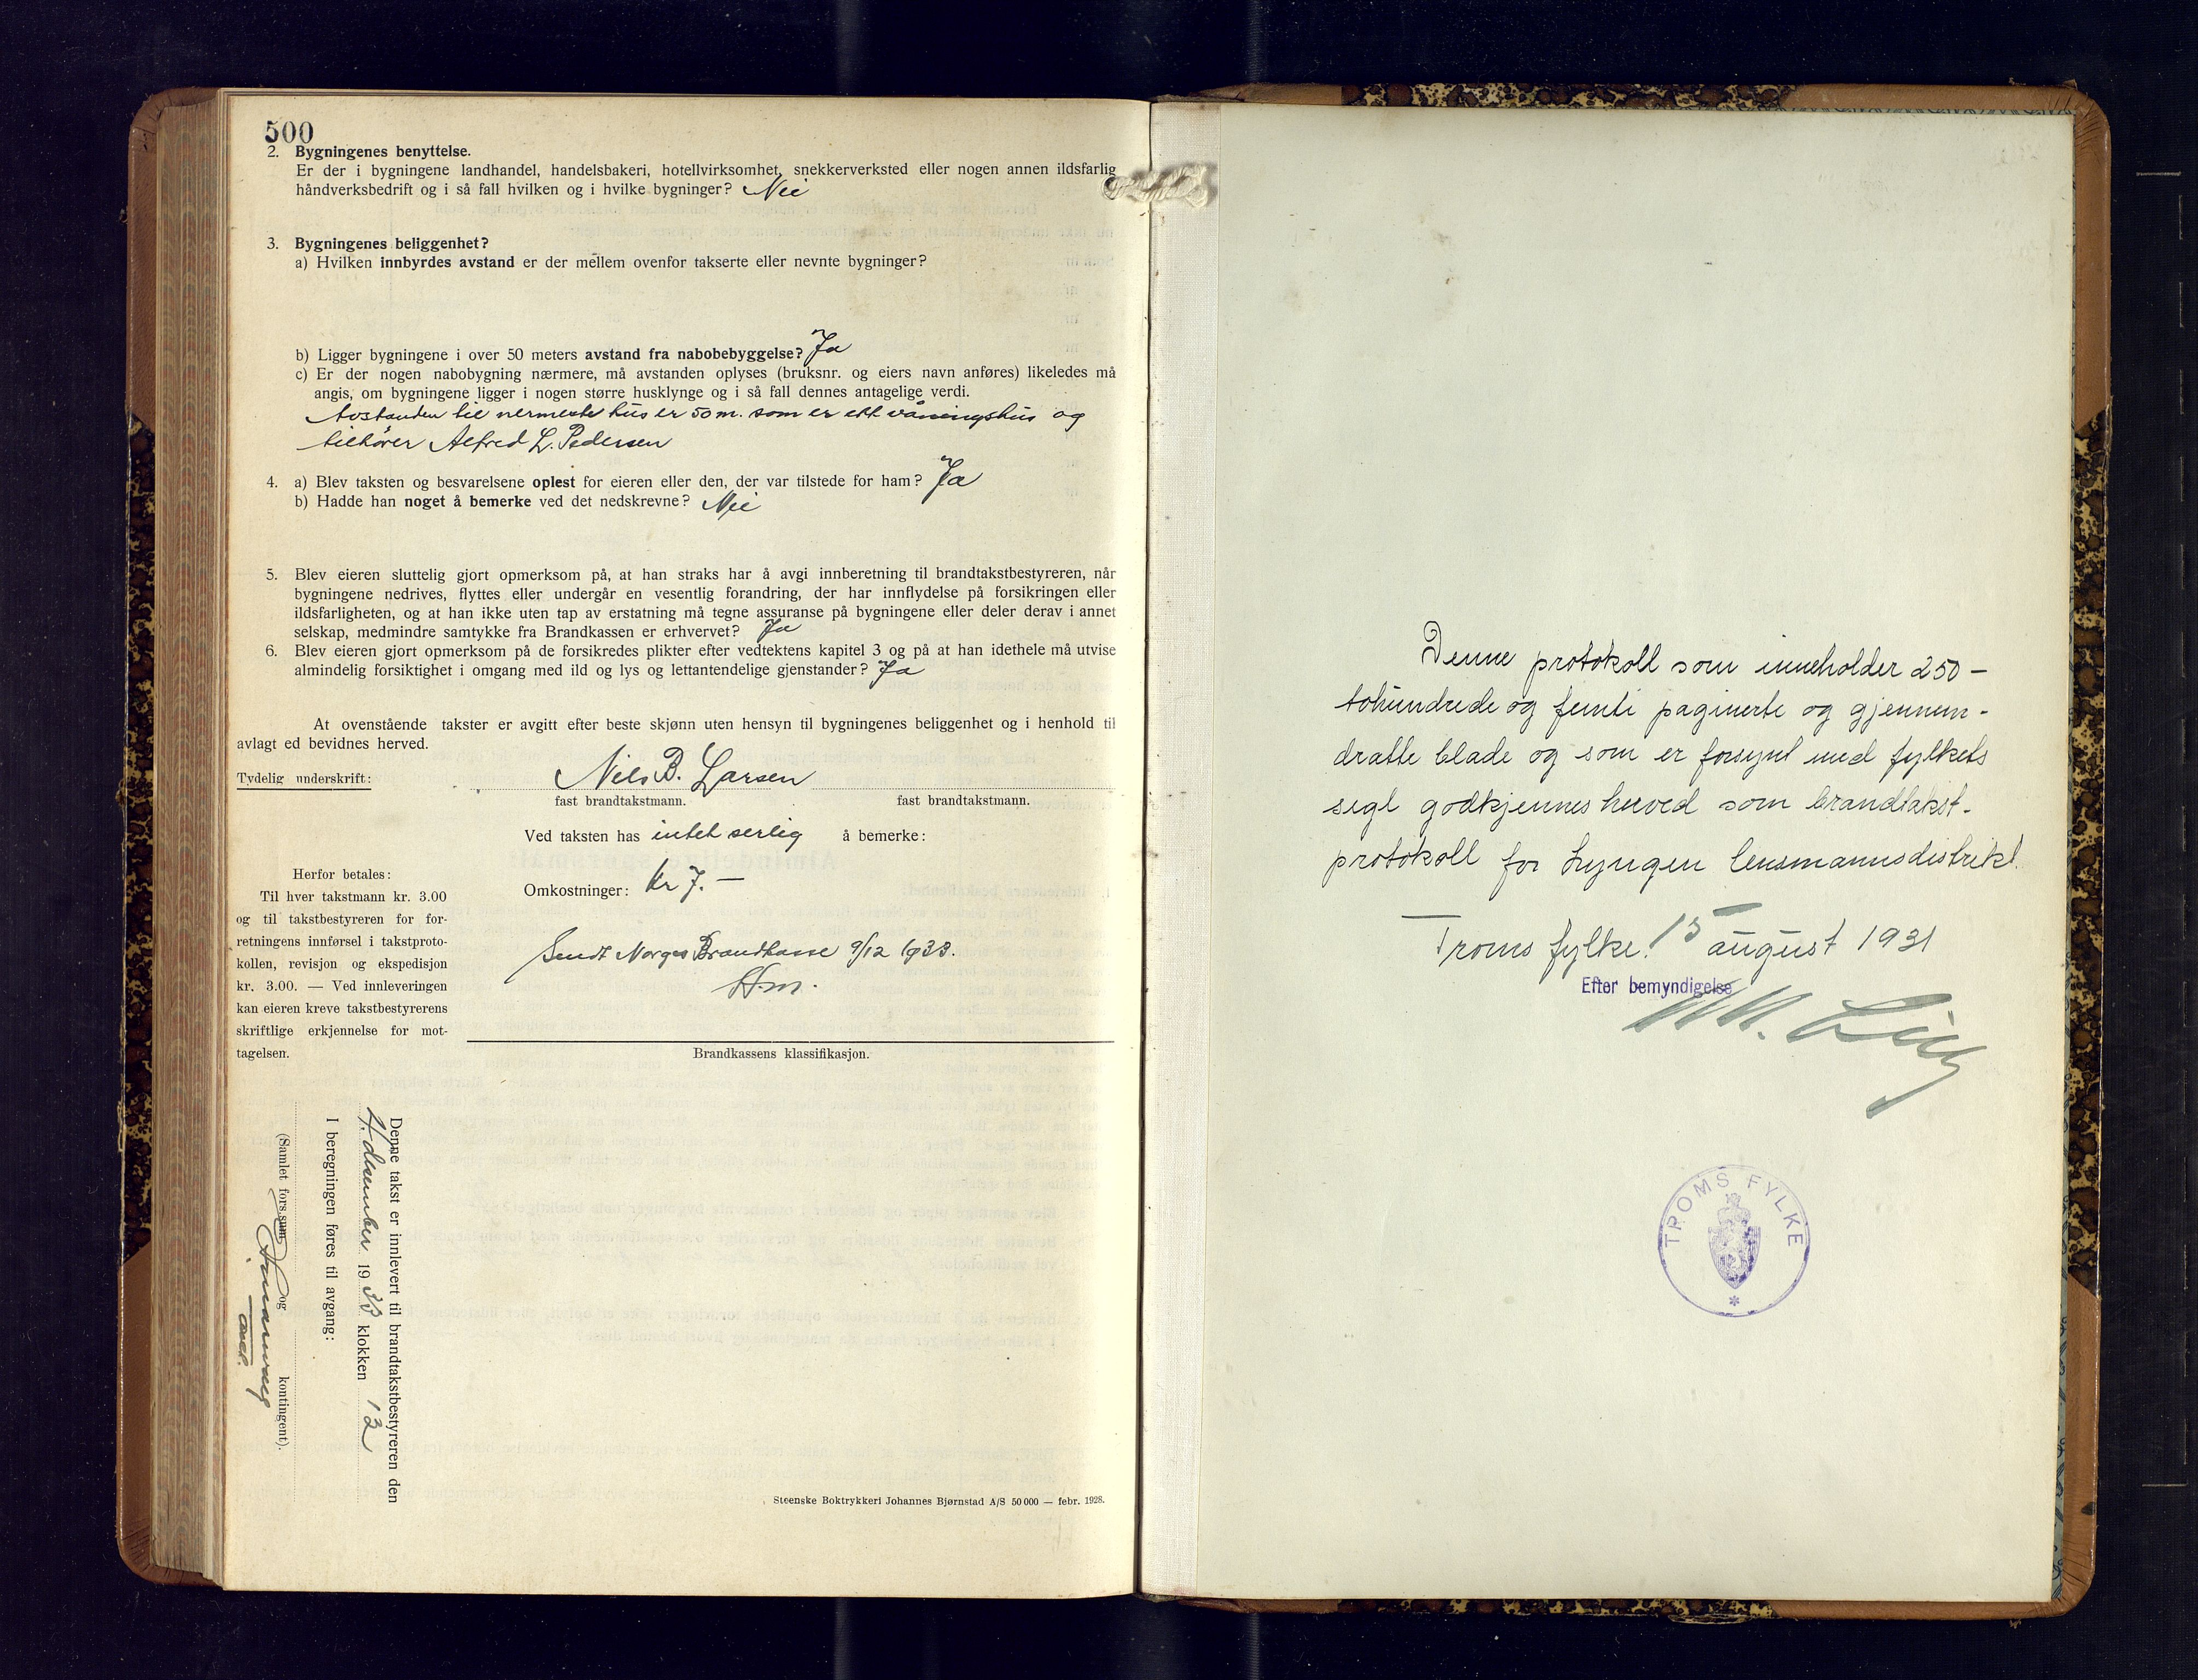 500
2. Bygningenes benyttelse.
Er der i bygningene landhandel, handelsbakeri, hotellvirksomhet, snekkerverksted eller nogen annen ildsfarlig
håndverksbedrift og i så fall hvilken og i hvilke bygninger? Nei
3. Bygningenes beliggenhet?
a) Hvilken innbyrdes avstand er der mellem ovenfor takserte eller nevnte bygninger?
b) Ligger bygningene i over 50 meters avstand fra nabobebyggelse? Ja
c) Er der nogen nabobygning nærmere, må avstanden oplyses (bruksnr. og eiers navn anføres) likeledes må
angis, om bygningene ligger i nogen større husklynge og i så fall dennes antagelige verdi.
Avstanden til nermeste hus er 50 m. som er ett våningshus og
tilhører Alfred L. Pedersen
4. a) Blev taksten og besvarelsene oplest for eieren eller den, der var tilstede for ham? Ja
b) Hadde han noget å bemerke ved det nedskrevne? Nei
5. Blev eieren sluttelig gjort opmerksom på, at han straks har å avgi innberetning til brandtakstbestyreren, når
bygningene nedrives, flyttes eller undergår en vesentlig forandring, der har innflydelse på forsikringen eller
ildsfarligheten, og at han ikke uten tap av erstatning må tegne assuranse på bygningene eller deler derav i annet
selskap, medmindre samtykke fra Brandkassen er erhvervet? Ja
6. Blev eieren gjort opmerksom på de forsikredes plikter efter vedtektens kapitel 3 og på at han idethele må utvise
almindelig forsiktighet i omgang med ild og lys og lettantendelige gjenstander? Ja
At ovenstående takster er avgitt efter beste skjønn uten hensyn til bygningenes beliggenhet og i henhold til
avlagt ed bevidnes herved.
Tydelig underskrift: Nils B. Larsen
fast brandtakstmann. fast brandtakstmann.
Ved taksten has intet serlig å bemerke:
Omkostninger: Kr 7.—
Sendt Norges Brandkasse 9/12 1933.
Herfor betales:
Til hver takstmann kr. 3.00
og til takstbestyreren for for-
retningens innførsel i takstproto-
kollen, revisjon og ekspedisjon
kr. 3.00. — Ved innleveringen
kan eieren kreve takstbestyrerens
skriftlige erkjennelse for mot-
tagelsen.
Brandkassens klassifikasjon.
Denne takst er innlevert til brandtakstbestyreren den
4. desember 1933 klokken 12
I beregningen føres til avgang:
(Samlet fors.sum og kontingent).
Steenske Boktrykkeri Johannes Bjørnstad A/S 50 000 — febr. 1928.
Denne protokoll som inneholder 250 –
tohundrede og femti paginerte og gjennem-
dratte blade og som er forsynt med fylkets
segl godkjennes herved som brandtakst-
protokoll for Lyngen lensmannsdistrikt.
Troms fylke. 15 august 1931
Efter bemyndigelse
TROMS FYLKE
*